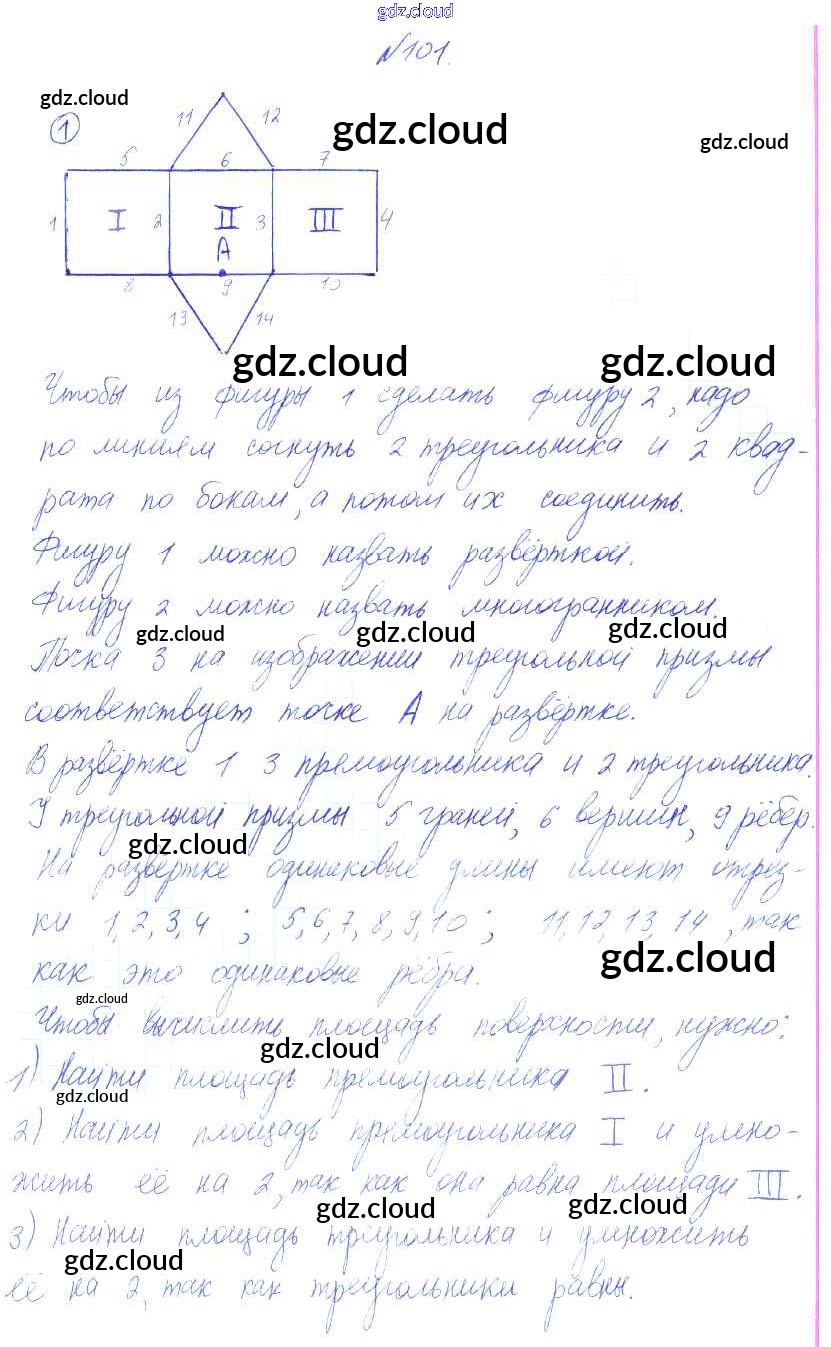 gdz.cloud
№101.
gdz.cloud
gdz.cloud
gdz.cloud
1
11 12
5 6 7
1 I 2 II 3 III 4
A
8 9 10
13 14
gdz.cloud gdz.cloud
Чтобы из фигуры 1 сделать фигуру 2, надо
по линиям согнуть 2 треугольника и 2 квад-
рата по бокам, а потом их соединить.
Фигуру 1 можно назвать развёрткой.
Фигуру 2 можно назвать многогранником.
gdz.cloud gdz.cloud gdz.cloud
Точка 3 на изображении треугольной призмы
соответствует точке А на развёртке.
В развёртке 1 3 прямоугольника и 2 треугольника.
У треугольной призмы 5 граней, 6 вершин, 9 рёбер.
gdz.cloud
На развёртке одинаковые длины имеют отрез-
ки 1, 2, 3, 4 ; 5, 6, 7, 8, 9, 10 ; 11, 12, 13, 14 , так
как это одинаковые рёбра.
gdz.cloud
gdz.cloud
Чтобы вычислить площадь поверхности, нужно:
gdz.cloud
1) Найти площадь прямоугольника II.
gdz.cloud
2) Найти площадь прямоугольника I и умно-
жить её на 2, так как она равна площади III.
gdz.cloud gdz.cloud
3) Найти площадь треугольника и умножить
gdz.cloud
её на 2, так как треугольники равны.